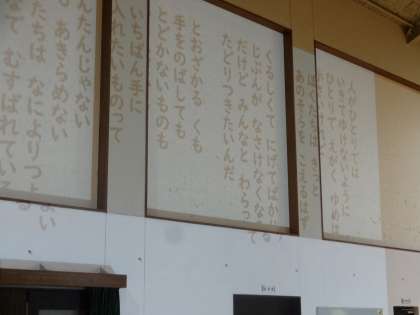 人がひとりでは
いきてゆけないように
ひとりで えがく ゆめは
あのそらを こえるはず
くるしくて にげてばかり
じぶんが なさけなくなる
だけど みんなと わらって
たどりつきたいんだ
とおざかる くも
手をのばしても
とどかないものも
いちばん手に
入れたいものって
んたんじゃない
も あきらめない
たちは なによりつよい
なで むすばれている